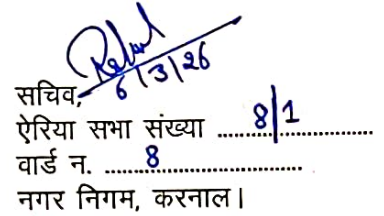 6/3/26
सचिव,
ऐरिया सभा संख्या ..........8/1..........
वार्ड न. ......8....................
नगर निगम, करनाल।